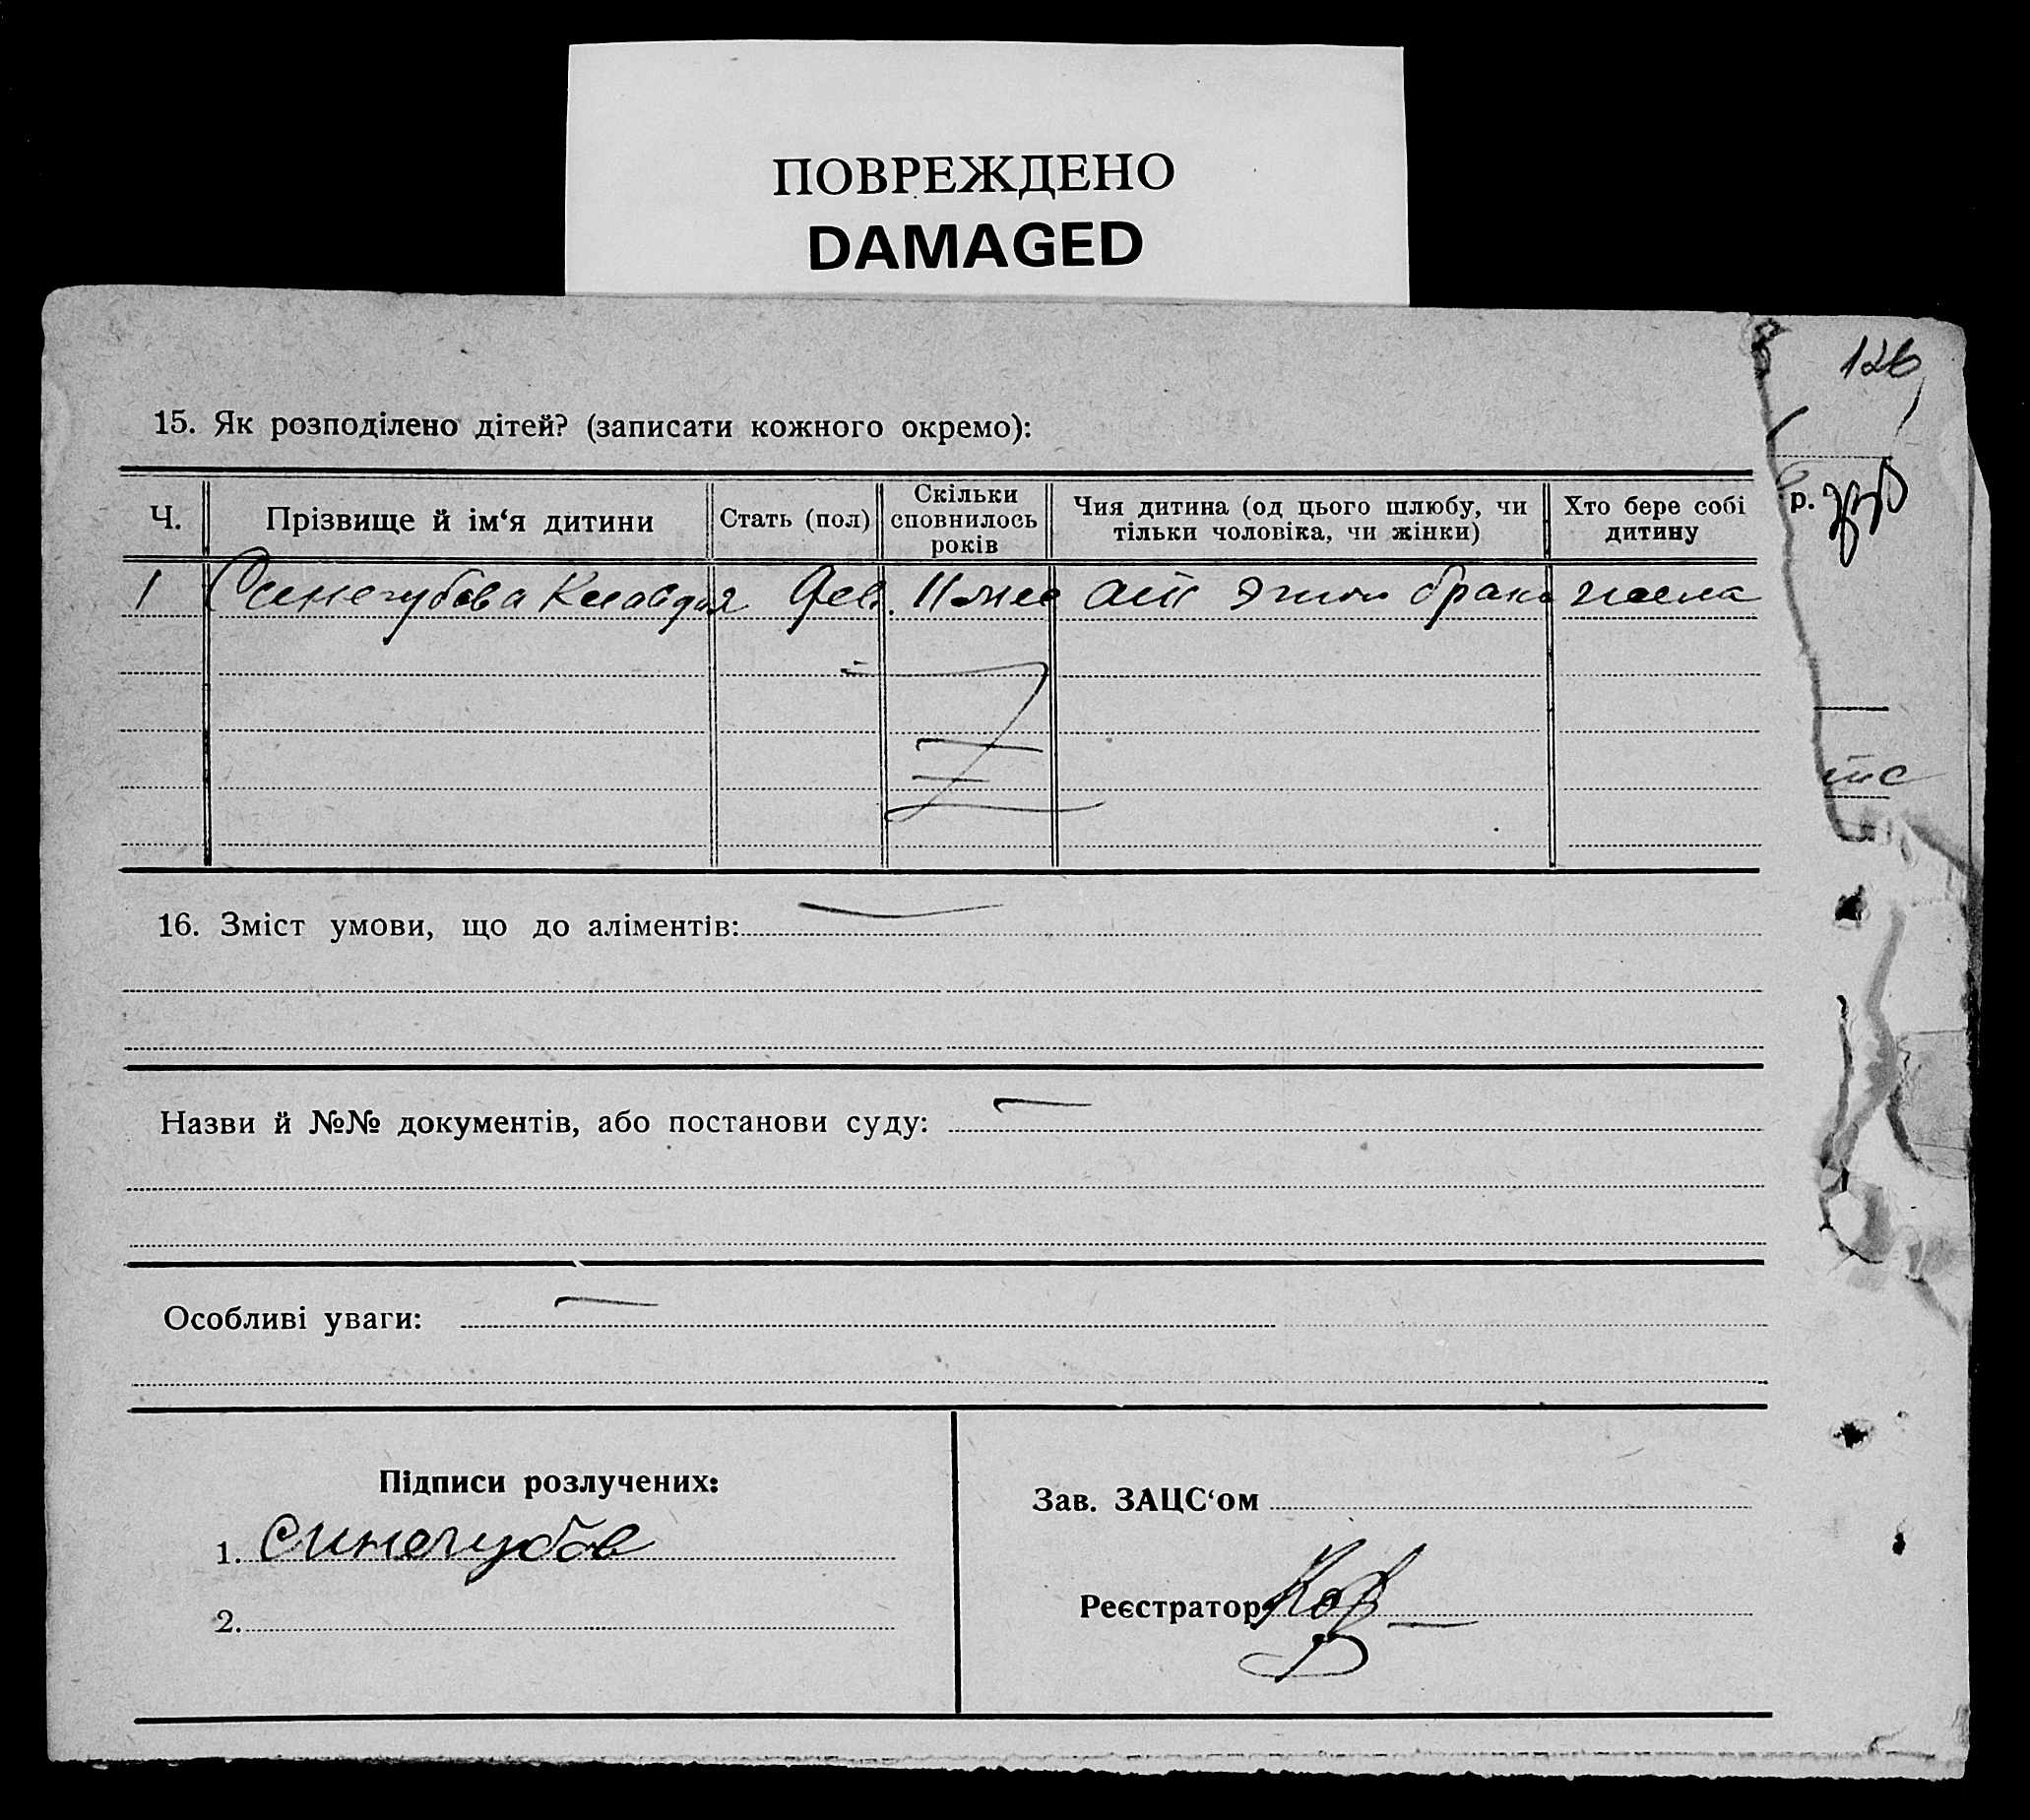 ПОВРЕЖДЕНО
DAMAGED
126
15. Як розподілено дітей? (записати кожного окремо):
Ч. Прізвище й ім‘я дитини Стать (пол) Скільки сповнилось років Чия дитина (од цього шлюбу, чи тільки чоловіка, чи жінки) Хто бере собі дитину
р.
1 Синегубова Клавдия Дев. 11 мес от этого брака
16. Зміст умови, що до аліментів:
Назви й №№ документів, або постанови суду:
Особливі уваги:
Підписи розлучених:
1. Синегубов
2.
Зав. ЗАЦС‘ом
Реєстратор